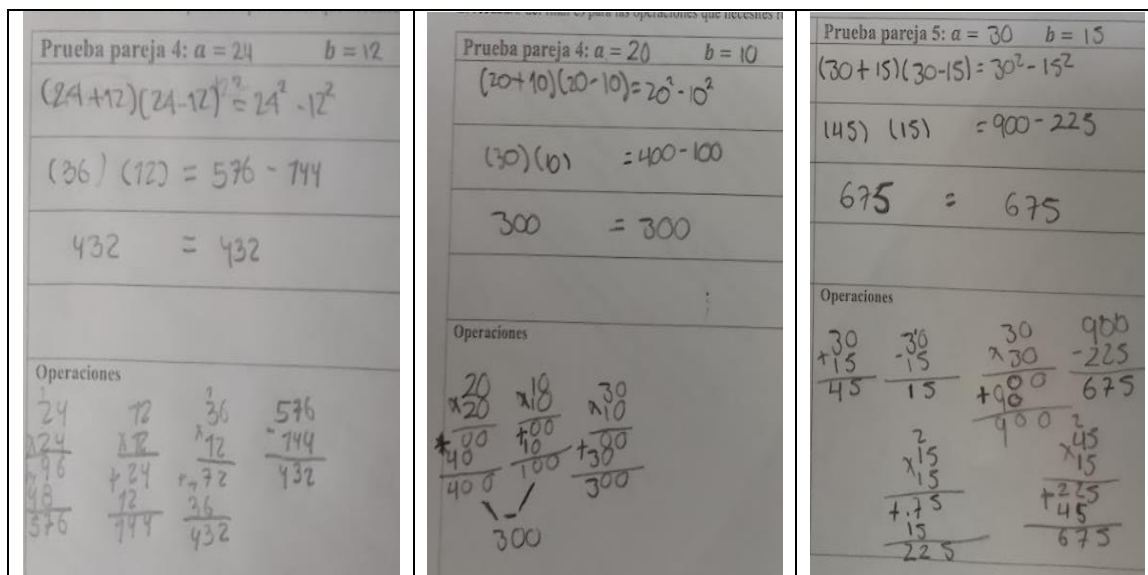 Prueba pareja 4: a = 24 b = 12
(24+12)(24-12) = 24² - 12²
(36) (12) = 576 - 144
432 = 432
Operaciones
24
x24
+96
48
576
12
x12
+24
12
144
3
36
x12
+72
36
432
576
-144
432
para las operaciones que necesites
Prueba pareja 4: a = 20 b = 10
(20+10)(20-10) = 20² - 10²
(30)(10) = 400 - 100
300 = 300
Operaciones
20
x20
+00
40
400
10
x10
+00
10
100
30
x10
+00
30
300
300
Prueba pareja 5: a = 30 b = 15
(30+15)(30-15) = 30² - 15²
(45) (15) = 900 - 225
675 = 675
Operaciones
30
+15
45
30
-15
15
30
x30
+00
90
900
900
-225
675
2
x15
15
+75
15
225
2
x45
15
+225
45
675